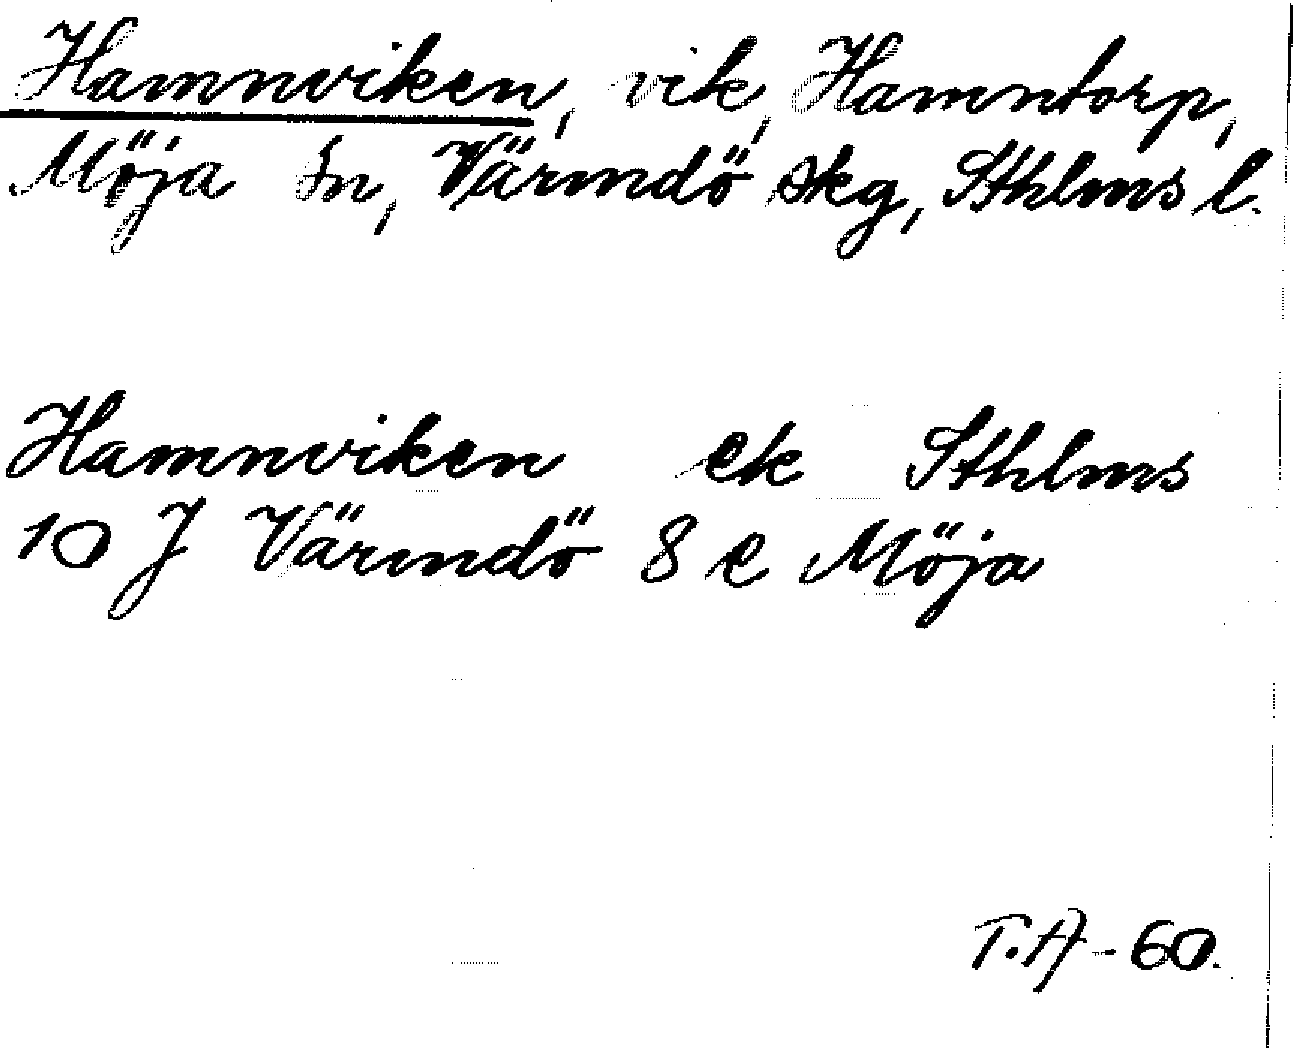 Hamnviken, vik, Hamntorp,
Möja sn, Värmdö skg, Sthlms l.
Hamnviken ek Sthlms
10 J Värmdö 8 e Möja
T.A-60.